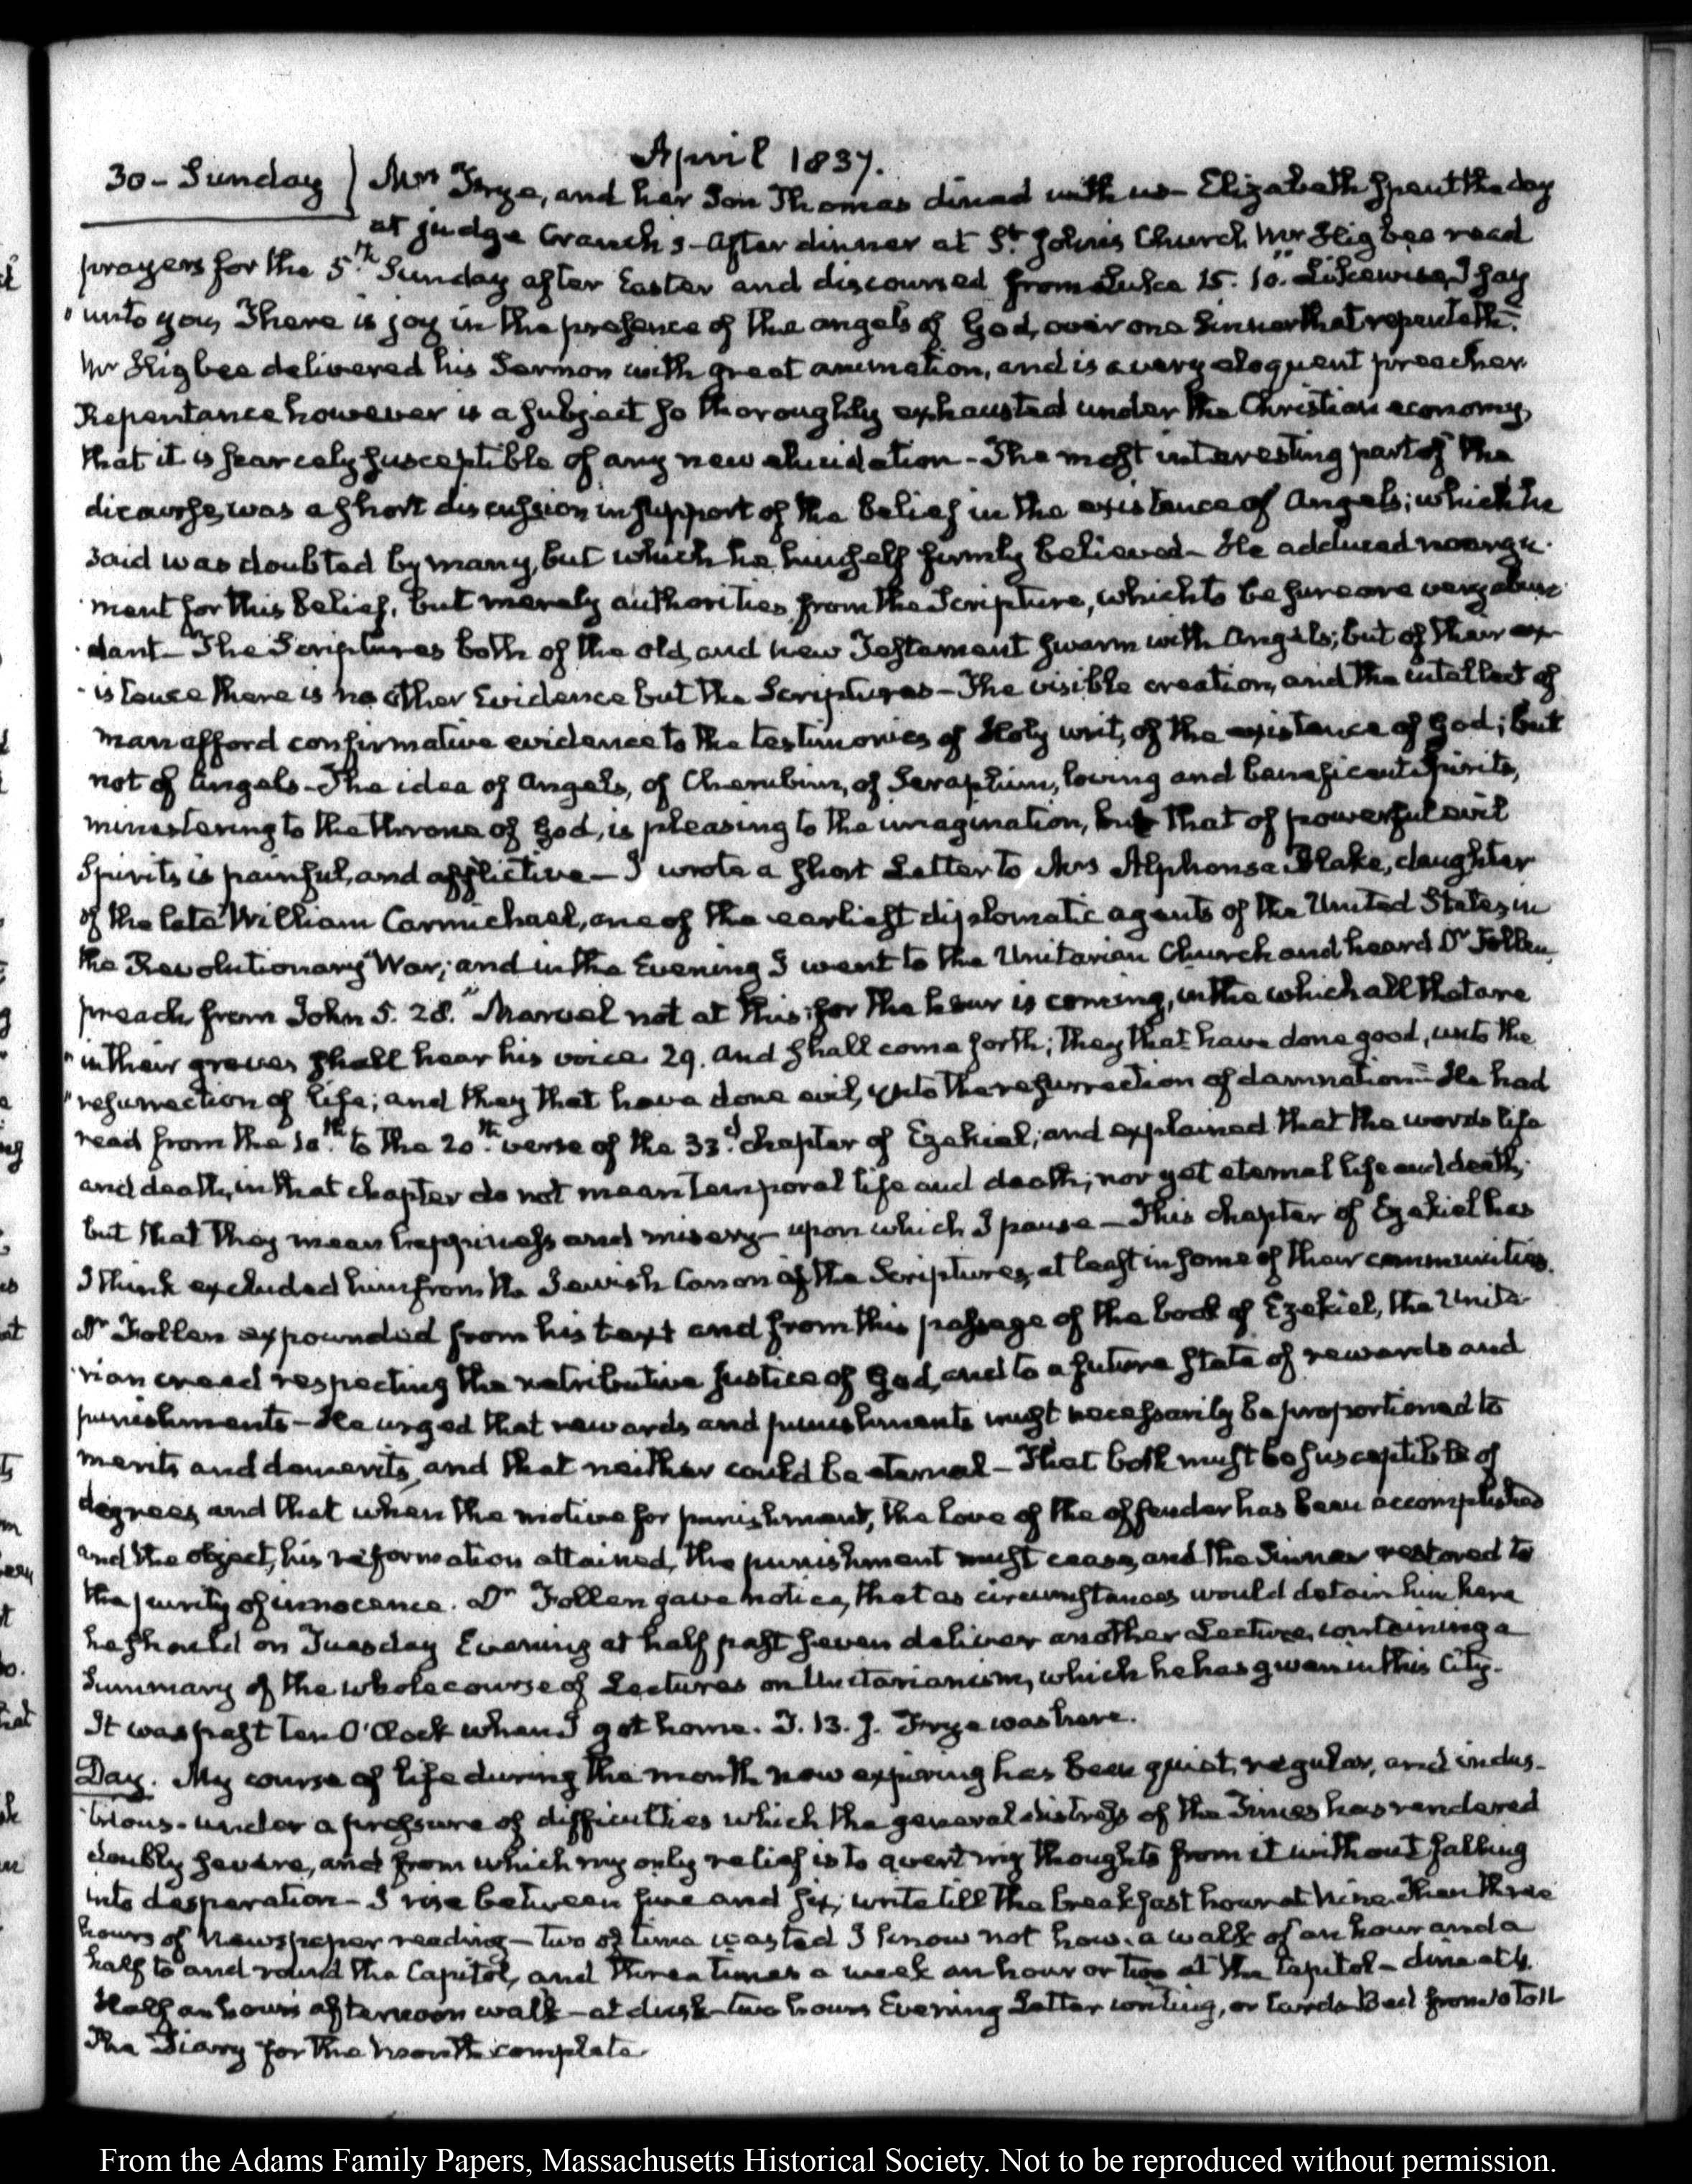 April 1837.
30 - Sunday } Mrs Frye, and her Son Thomas dined with us - Elizabeth spent the day
at judge Cranch's - After dinner at St. John's Church Mr Higbee read
prayers for the 5.th Sunday after Easter and discoursed from Luke 15. 10. "Likewise, I say
"unto you, There is joy in the presence of the angels of God, over one Sinner that repenteth."
Mr Higbee delivered his Sermon with great animation, and is a very eloquent preacher
Repentance however is a subject so thoroughly exhausted under the Christian economy,
that it is scarcely susceptible of any new elucidation - The most interesting part of the
dicourse, was a short discussion in support of the belief in the existence of Angels; which he
said was doubted by many, but which he himself firmly believed - He adduced no argu-
-ment for this belief, but merely authorities from the Scripture, which to be sure are very abun-
-dant - The Scriptures both of the old, and new Testament swarm with Angels; but of their ex-
-istence there is no other Evidence but the Scriptures - The visible creation, and the intellect of
man afford confirmative evidence to the testimonies of Holy writ, of the existence of God; but
not of Angels - The idea of Angels, of Cherubim, of Seraphim, loving and beneficent Spirits,
ministering to the throne of God, is pleasing to the imagination, but that of powerful evil
Spirits, is painful, and afflictive - I wrote a short Letter to Mrs Alphonsa Blake, daughter
of the late William Carmichael, one of the earliest diplomatic agents of the United States, in
the Revolutionary War; and in the Evening I went to the Unitarian Church and heard Dr Follen,
preach from John 5. 28. "Marvel not at this: for the hour is coming, in the which all that are
"in their graves shall hear his voice 29. And shall come forth; they that have done good, unto the
"resurrection of life; and they that have done evil, unto the resurrection of damnation" - He had
read from the 10.th to the 20.th verse of the 33.d chapter of Ezekiel, and explained that the words life
and death, in that chapter do not mean temporal life and death; nor yet eternal life and death,
but that they mean happiness and misery - upon which I pause - This chapter of Ezekiel has
I think excluded him from the Jewish Canon of the Scriptures, at least in some of their communities.
Dr Follen expounded from his text and from this passage of the book of Ezekiel, the Unita-
-rian creed respecting the retributive justice of God, and to a future state of rewards and
punishments - He urged that rewards and punishments must necessarily be proportioned to
merits and demerits, and that neither could be eternal - That both must be susceptible of
degrees, and that when the motive for punishment, the love of the offender has been accomplished
and the object, his reformation attained, the punishment must cease, and the Sinner restored to
the purity of innocence. Dr Follen gave notice, that as circumstances would detain him here
he should on Tuesday Evening at half past seven deliver another Lecture, containing a
Summary of the whole course of Lectures on Unitarianism, which he has given in this City.
It was past ten O'Clock when I got home. T. B. J. Frye was here.
Day. My course of life during the month now expiring has been quiet, regular, and indus-
-trious - under a pressure of difficulties which the general distress of the Times has rendered
doubly severe, and from which my only relief is to avert my thoughts from it without falling
into desperation - I rise between five and six; write till the breakfast hour at Nine. Then three
hours of Newspaper reading - two of time wasted I know not how. a walk of an hour and a
half to and round the Capitol, and three times a week an hour or two at the Capitol - dine at 4.
Half an hour's afternoon walk - at dusk - two hours Evening Letter writing, or Cards - Bed from 10 to 11
The Diary for the month complete
From the Adams Family Papers, Massachusetts Historical Society. Not to be reproduced without permission.